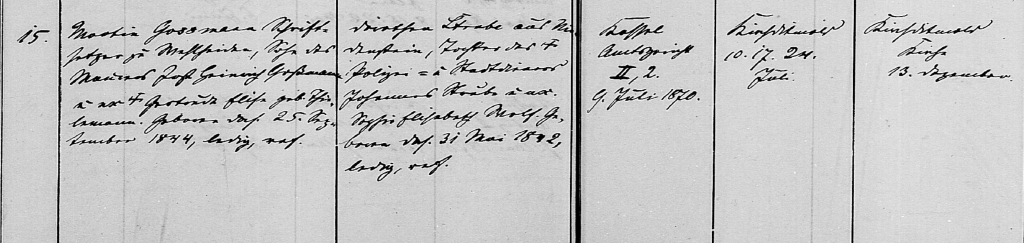 15.
Martin Gossmann Schrift-
setzer zu Wehlheiden, Sohn des
Maurers Jost Heinrich Goßmann
u ux + Gertrude Elise geb. Thie-
lemann. Geboren das. 25. Sep-
tember 1844, ledig, ref.
Dorothea Strube aus Nie-
denstein, Tochter des +
Polizei= u Stadtdieners
Johannes Strube u ux.
Sophie Elisabeth Wolf. Ge-
boren das. 31 Mai 1842,
ledig, ref.
Kassel
Amtsgericht
II, 2.
9. Juli 1870.
Kirchditmold
10. 17. 24.
Juli
Kirchditmold
Kirche
13. Dezember.